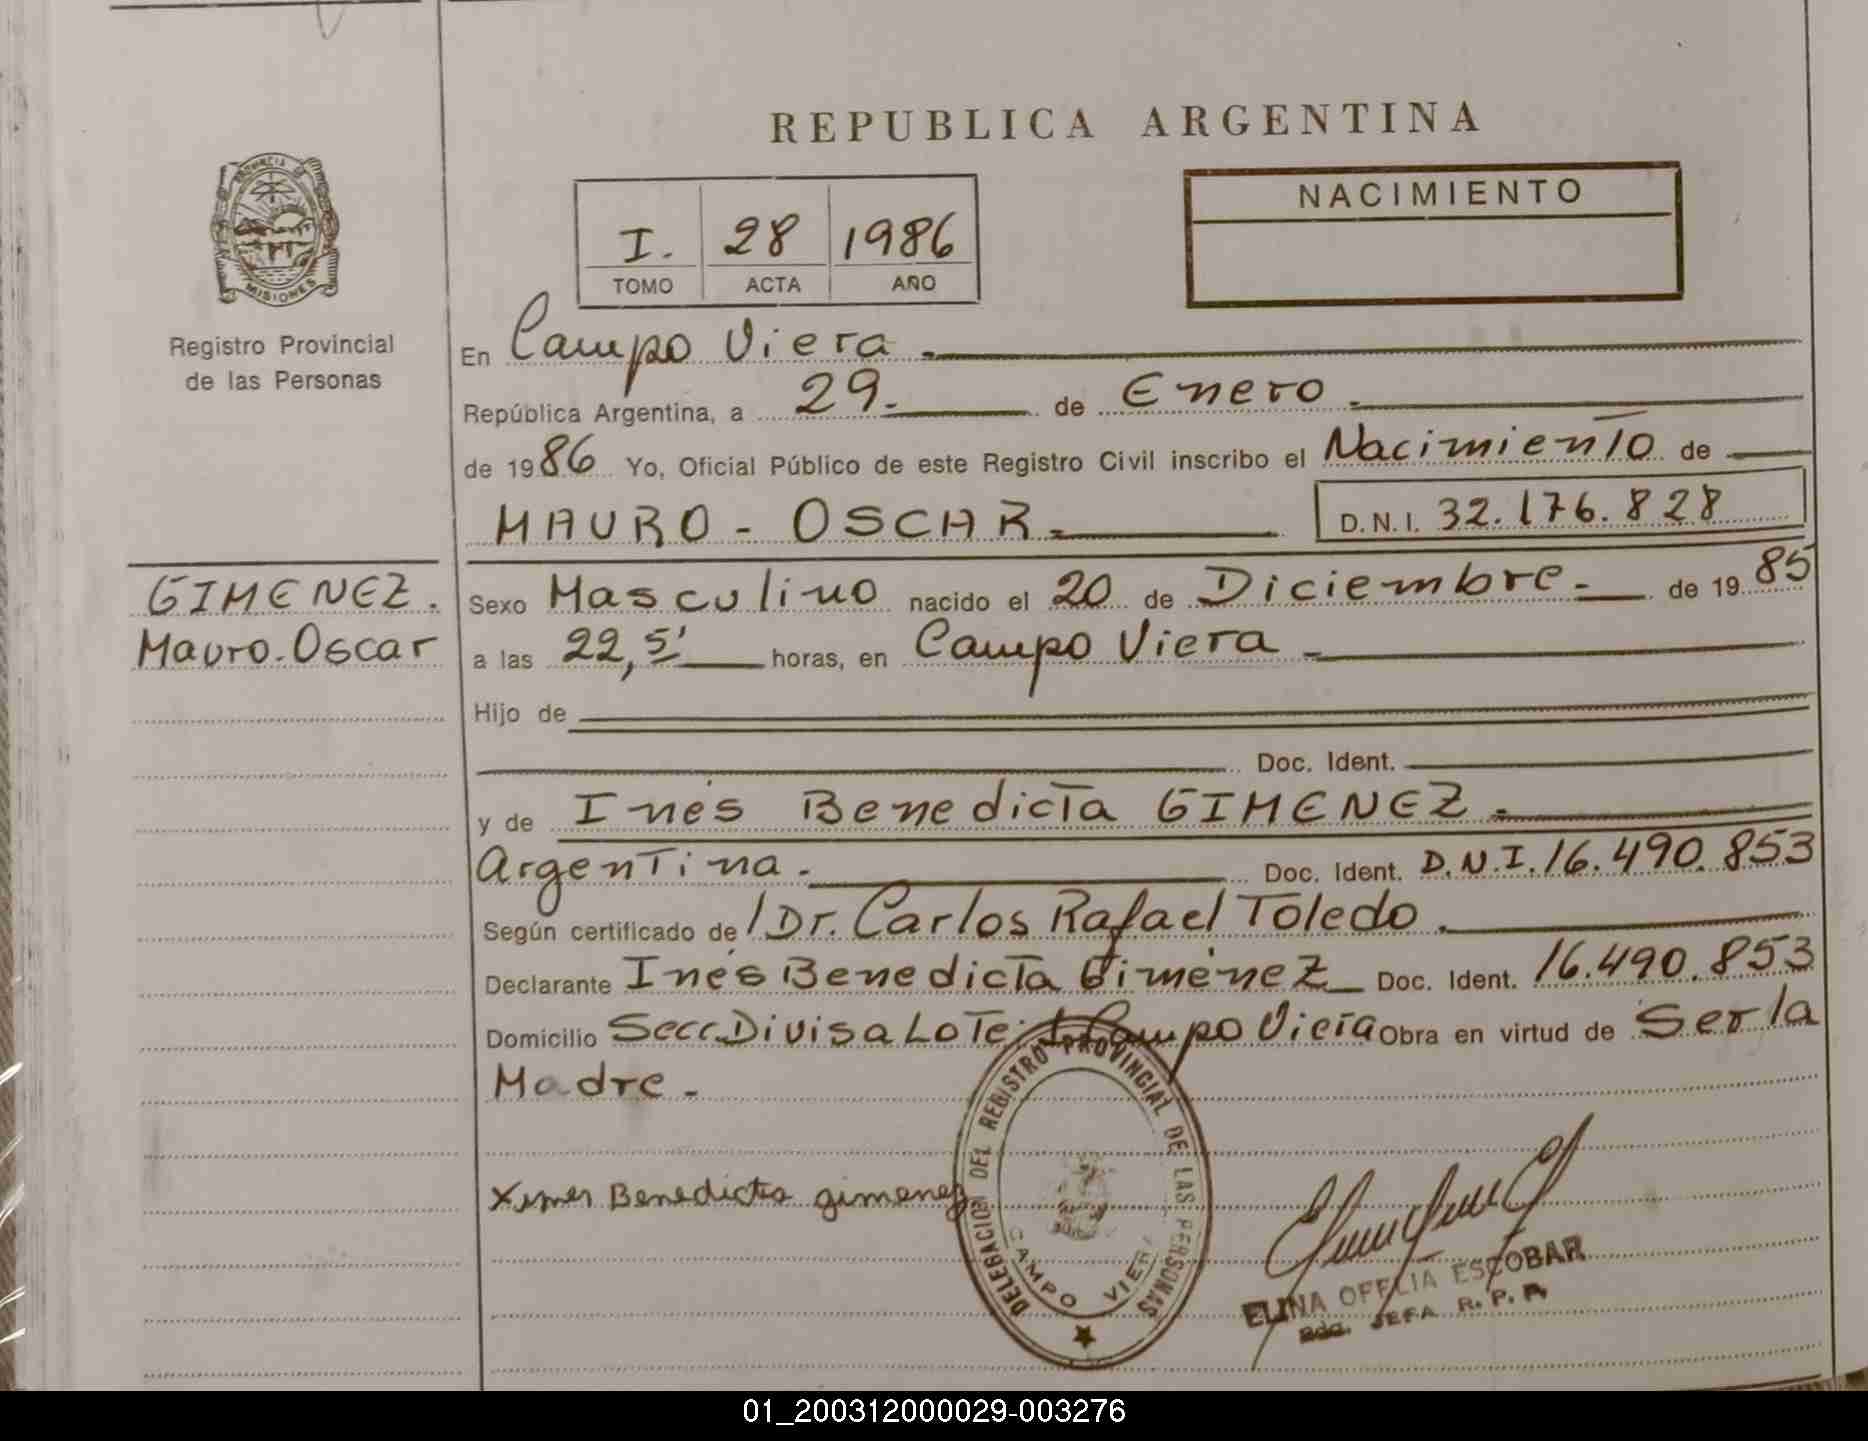 REPUBLICA ARGENTINA
PROVINCIA
MISIONES
Registro Provincial
de las Personas
I. 28 1986
TOMO ACTA AÑO
NACIMIENTO
En Campo Viera
República Argentina, a 29. de Enero
de 1986 Yo, Oficial Público de este Registro Civil inscribo el Nacimiento de
MAURO - OSCAR D.N.I. 32.176.828
GIMENEZ.
Mauro. Oscar
Sexo Masculino nacido el 20 de Diciembre de 1985
a las 22,5' horas, en Campo Viera
Hijo de
Doc. Ident.
y de Inés Benedicta GIMENEZ
Argentina. Doc. Ident. D.N.I. 16.490.853
Según certificado de / Dr. Carlos Rafael Toledo.
Declarante Inés Benedicta Giménez Doc. Ident. 16.490.853
Domicilio Secc. Divisa Lote Campo Viera Obra en virtud de Ser la
Madre.
Benedicta gimenez
DELEGACION DEL REGISTRO PROVINCIAL DE LAS PERSONAS
CAMPO VIERA
ELINA OFELIA ESCOBAR
JEFA R. P. P.
01_200312000029-003276